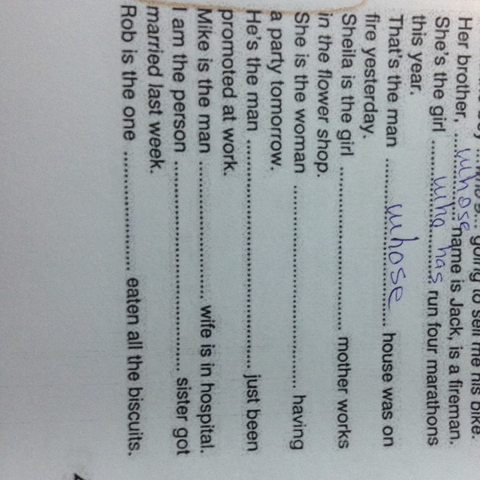 going to sell me his bike.
Her brother, whose name is Jack, is a fireman.
She's the girl who has run four marathons
this year.
That's the man ........ whose ........ house was on
fire yesterday.
Sheila is the girl ................................ mother works
in the flower shop.
She is the woman ................................ having
a party tomorrow.
He's the man ................................ just been
promoted at work.
Mike is the man ........................ wife is in hospital.
I am the person ................................ sister got
married last week.
Rob is the one ........................ eaten all the biscuits.